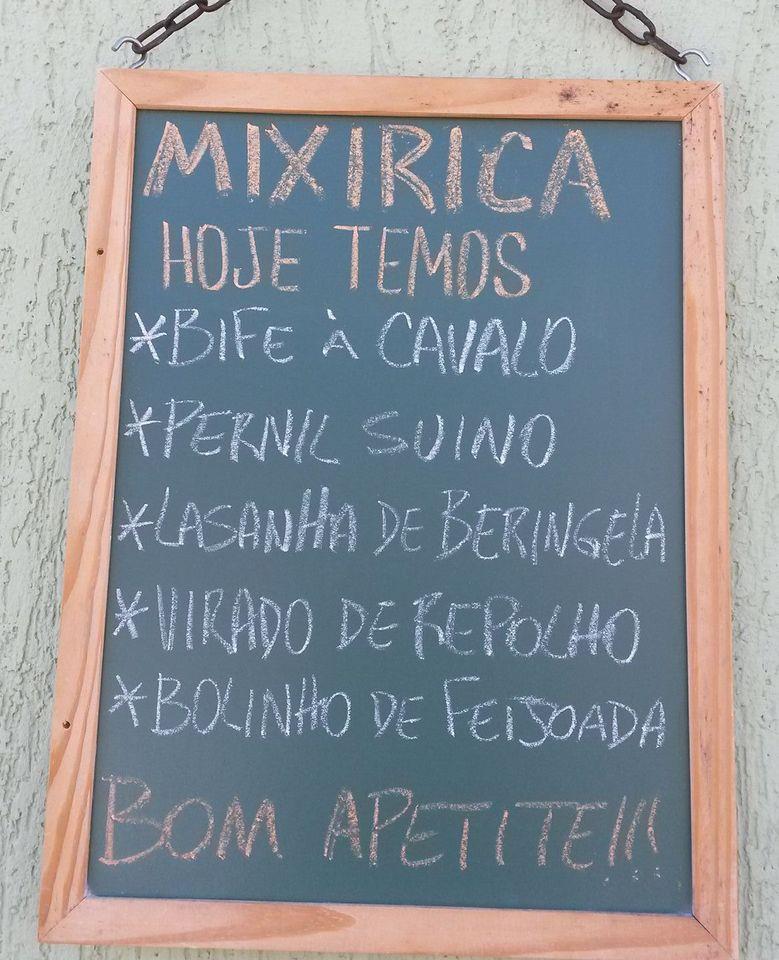 MIXIRICA
HOJE TEMOS
*BIFE À CAVALO
*PERNIL SUINO
*LASANHA DE BERINGELA
*VIRADO DE REPOLHO
*BOLINHO DE FEIJOADA
BOM APETITE!!!